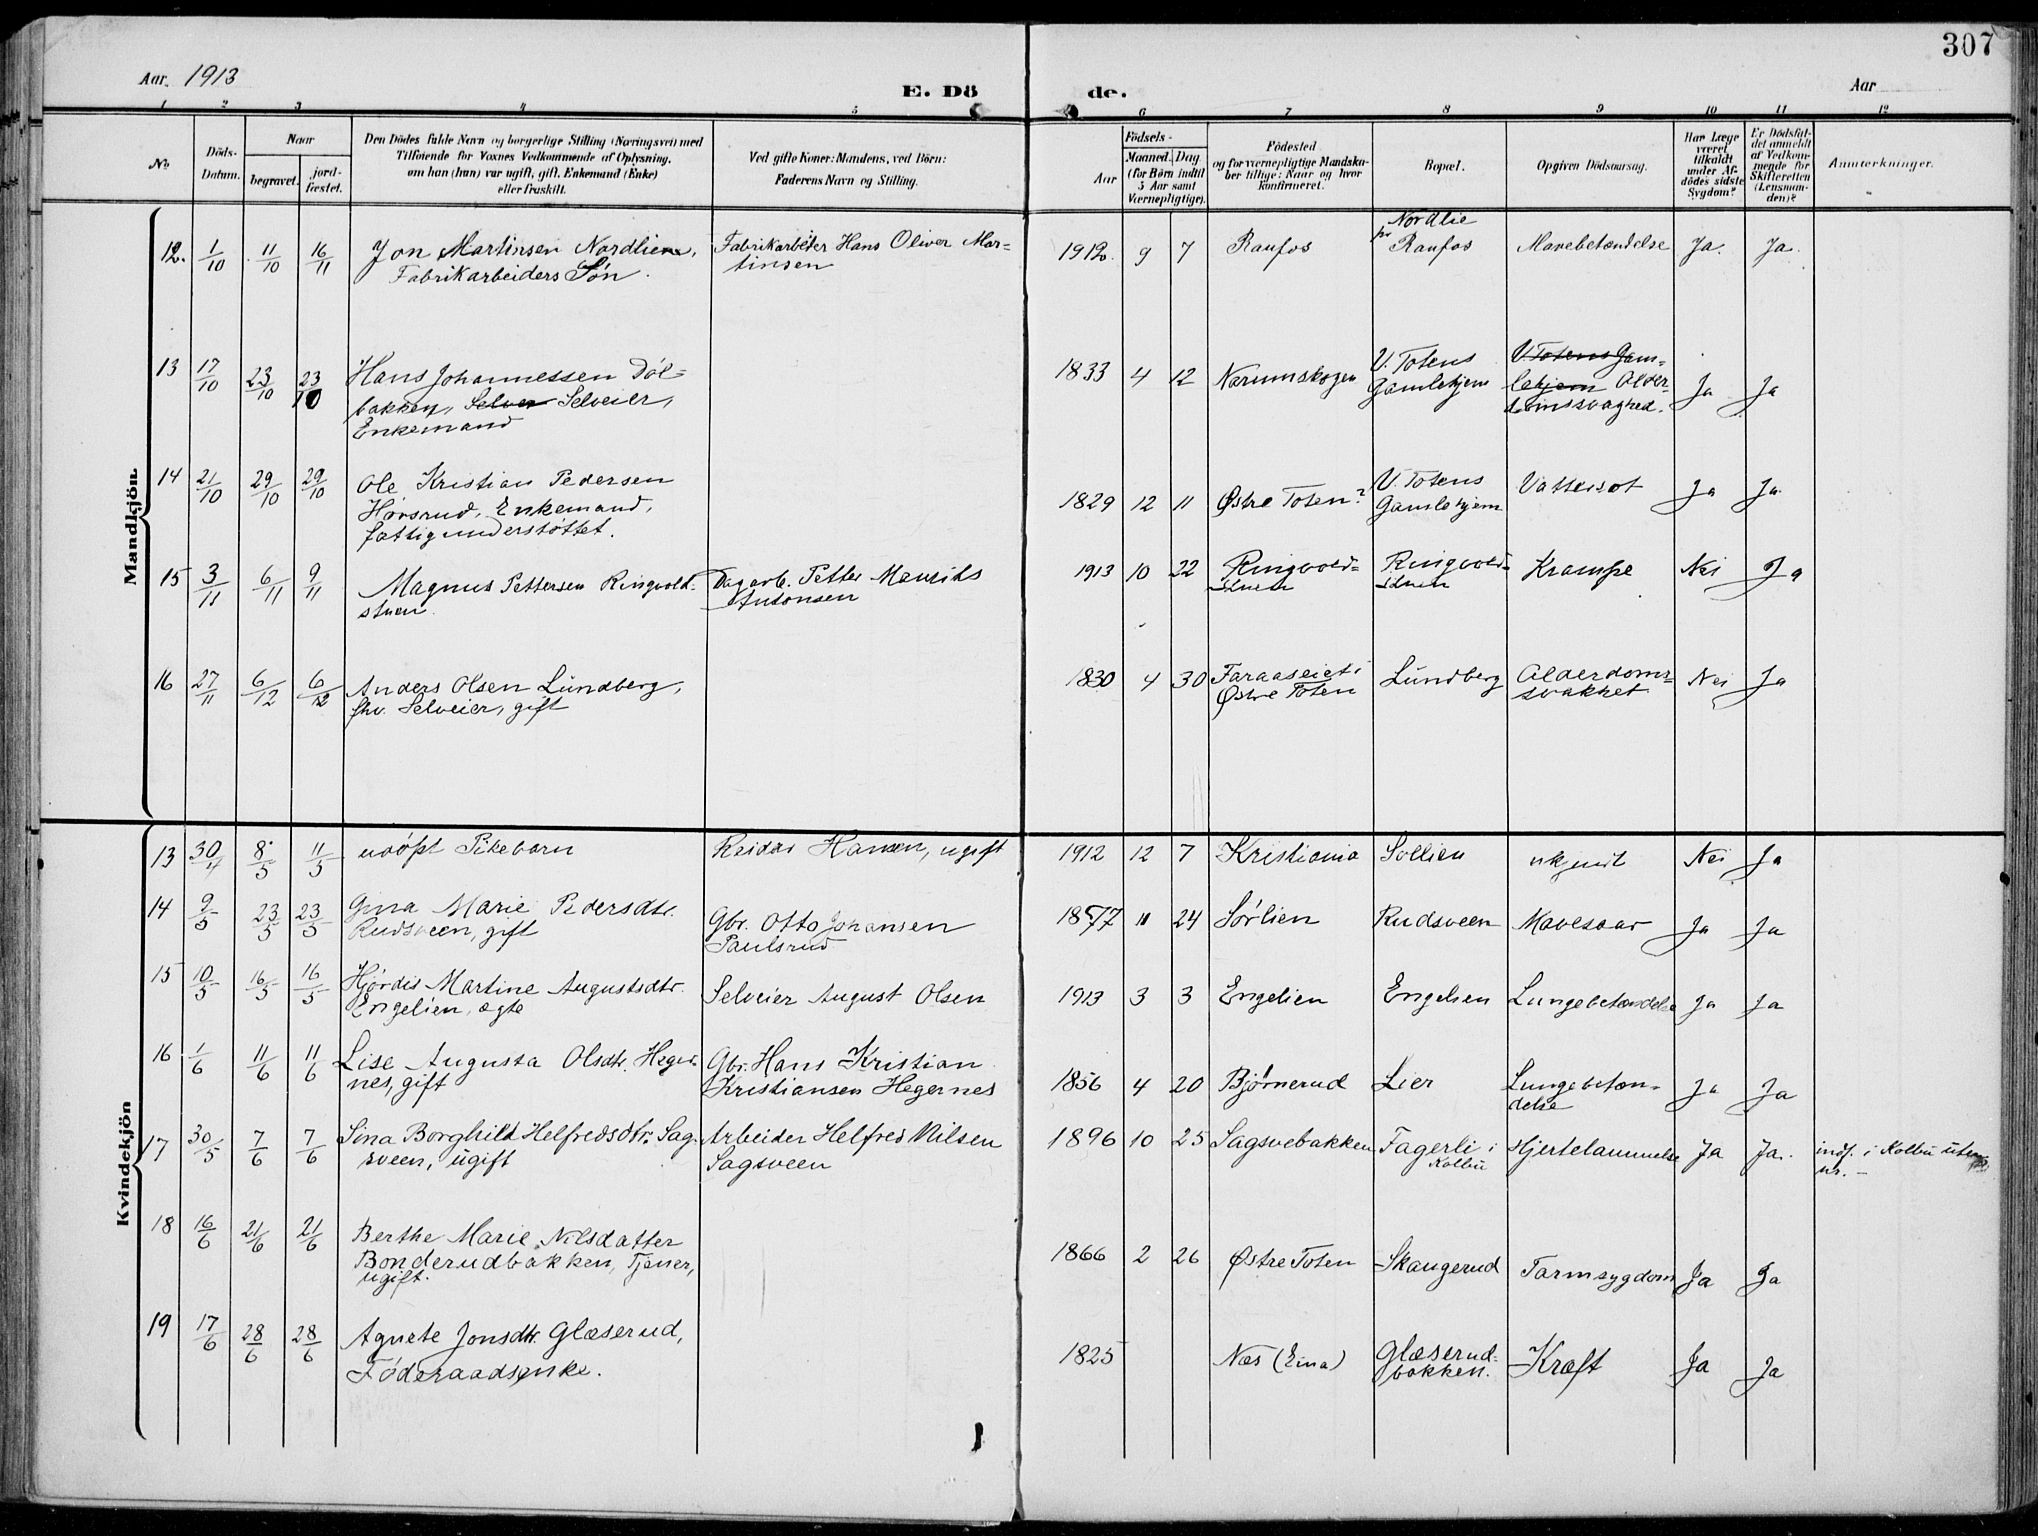 307
Aar. 1913
E. Dö de.
Aar
1 2 3 4 5 6 7 8 9 10 11 12
No
Döds-
Datum.
Naar
begravet.
jord-
fæstet.
Den Dödes fulde Navn og borgerlige Stilling (Næringsvei) med
Tilföiende for Voxnes Vedkommende af Oplysning,
om han (hun) var ugift, gift, Enkemand (Enke)
eller fraskilt.
Ved gifte Koner: Mandens, ved Börn:
Faderens Navn og Stilling.
Födsels-
Aar
Maaned. Dag
(for Börn indtil
5 Aar samt
Værnepligtige).
Födested
og for værnepligtige Mandska-
ber tillige: Naar og hvor
konfirmeret.
Bopæl.
Opgiven Dödsaarsag.
Har Læge
været
tilkaldt
under Af-
dödes sidste
Sygdom?
Er Dödsfal-
det anmeldt
af Vedkom-
mende for
Skifteretten
(Lensman-
den)?
Anmærkninger.
Mandkjön.
12. 1/10 11/10 16/11 Jon Martinsen Nordlien, Fabrikarbeiter Hans Oliver Mar- 1912. 9 7 Raufos Nordlie Mavebetændelse Ja. Ja.
Fabrikarbeiders Søn. tinsen pr Raufos
13 17/10 23/10 23/10 Hans Johannessen Døl- 1833 4 12 Narumskogen V. Totens V. Totens Gam- Ja Ja
bakken, Selver Selveier, Gamlehjem lehjem Alder-
Enkemand domssvaghed.
14 21/10 29/10 29/10 Ole Kristian Pedersen 1829 12 11 Østre Toten? V. Totens Vattersot Ja Ja
Hørsrud, Enkemand, Gamlehjem
fattigunderstøttet.
15 3/11 6/11 9/11 Magnus Pettersen Ringvold- Dagarb. Petter Mauritz 1913 10 22 Ringvold- Ringvold- Krampe Nei Ja
stuen. Antonsen stuen stuen
16 27/11 6/12 6/12 Anders Olsen Lundberg, 1830 4 30 Faraaseiet i Lundberg Alderdoms- Nei Ja
fhv. Selveier, gift Østre Toten svakhet
Kvindekjön
13 30/4 8/5 11/5 udøpt Pikebarn Reidar Hansen, ugift 1912 12 7 Kristiania Sollien ukjendt Nei Ja
14 9/5 23/5 23/5 Gina Marie Pedersdtr. Gbr. Otto Johansen 1857 11 24 Sørlien Rudsveen Mavesaar Ja Ja
Rudsveen, gift Paulsrud
15 10/5 16/5 16/5 Hjørdis Martine Augustsdtr. Selveier August Olsen 1913 3 3 Engelien Engelien Lungebetændelse Ja Ja
Engelien, ægte
16 1/6 11/6 11/6 Lise Augusta Olsdtr. Heger- Gbr. Hans Kristian 1856 4 20 Bjørnerud Lier Lungebetæn- Ja Ja
nes, gift Kristiansen Hegernes delse
17 30/5 7/6 7/6 Sina Borghild Helfredsdtr. Sag- Arbeider Helfred Nilsen 1896 10 25 Sagsvebakken Fagerli i Hjertelammelse Ja Ja. indf. i Kolbu uten
sveen, ugift Sagsveen Kolbu nr. –
18 16/6 21/6 21/6 Berthe Marie Nilsdatter 1866 2 26 Østre Toten Skaugerud Tarmsygdom Ja Ja
Bonderudbakken, Tjener,
ugift.
19 17/6 28/6 28/6 Agnete Jonsdtr. Glæserud, 1825 Næs (Eina) Glæserud- Kræft Ja Ja
Føderaadsenke. bakken.